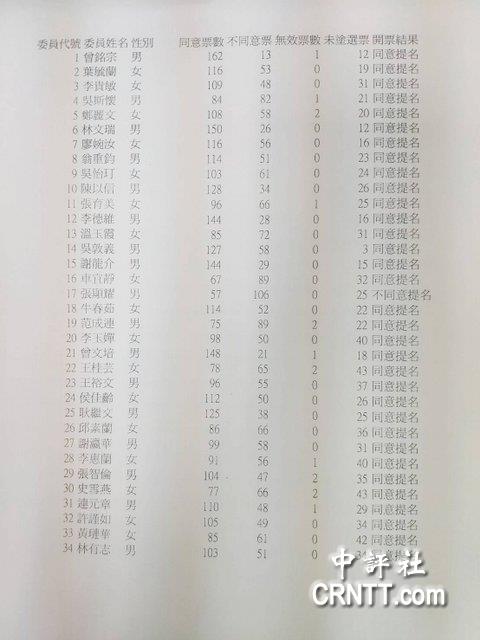 委員代號 委員姓名 性別 同意票數 不同意票 無效票數 未塗選票 開票結果
1 曾銘宗 男 162 13 1 12 同意提名
2 葉毓蘭 女 116 53 0 19 同意提名
3 李貴敏 女 109 48 0 31 同意提名
4 吳斯懷 男 84 82 1 21 同意提名
5 鄭麗文 女 108 58 2 20 同意提名
6 林文瑞 男 150 26 0 12 同意提名
7 廖婉汝 女 116 56 0 16 同意提名
8 翁重鈞 男 114 51 0 23 同意提名
9 吳怡玎 女 103 61 0 24 同意提名
10 陳以信 男 128 34 0 26 同意提名
11 張育美 女 96 66 1 25 同意提名
12 李德維 男 144 28 0 16 同意提名
13 溫玉霞 女 85 72 0 31 同意提名
14 吳敦義 男 127 58 0 3 同意提名
15 謝龍介 男 144 29 0 15 同意提名
16 車宜靜 女 67 89 0 32 同意提名
17 張顯耀 男 57 106 0 25 不同意提名
18 牛春茹 女 114 52 0 22 同意提名
19 范成連 男 75 89 2 22 同意提名
20 李玉嬋 女 98 50 0 40 同意提名
21 曾文培 男 148 21 1 18 同意提名
22 王桂芸 女 78 65 2 43 同意提名
23 王裕文 男 96 55 0 37 同意提名
24 侯佳齡 女 112 50 0 26 同意提名
25 耿繼文 男 125 38 0 25 同意提名
26 邱素蘭 女 86 66 0 36 同意提名
27 謝瀛華 男 99 58 0 31 同意提名
28 李惠蘭 女 91 56 1 40 同意提名
29 張智倫 男 104 47 2 35 同意提名
30 史雪燕 女 77 66 2 43 同意提名
31 連元章 男 110 48 1 29 同意提名
32 許謹如 女 105 49 0 34 同意提名
33 黃璉華 女 85 61 0 42 同意提名
34 林有志 男 103 51 0 34 同意提名
中評社
CRNTT.com